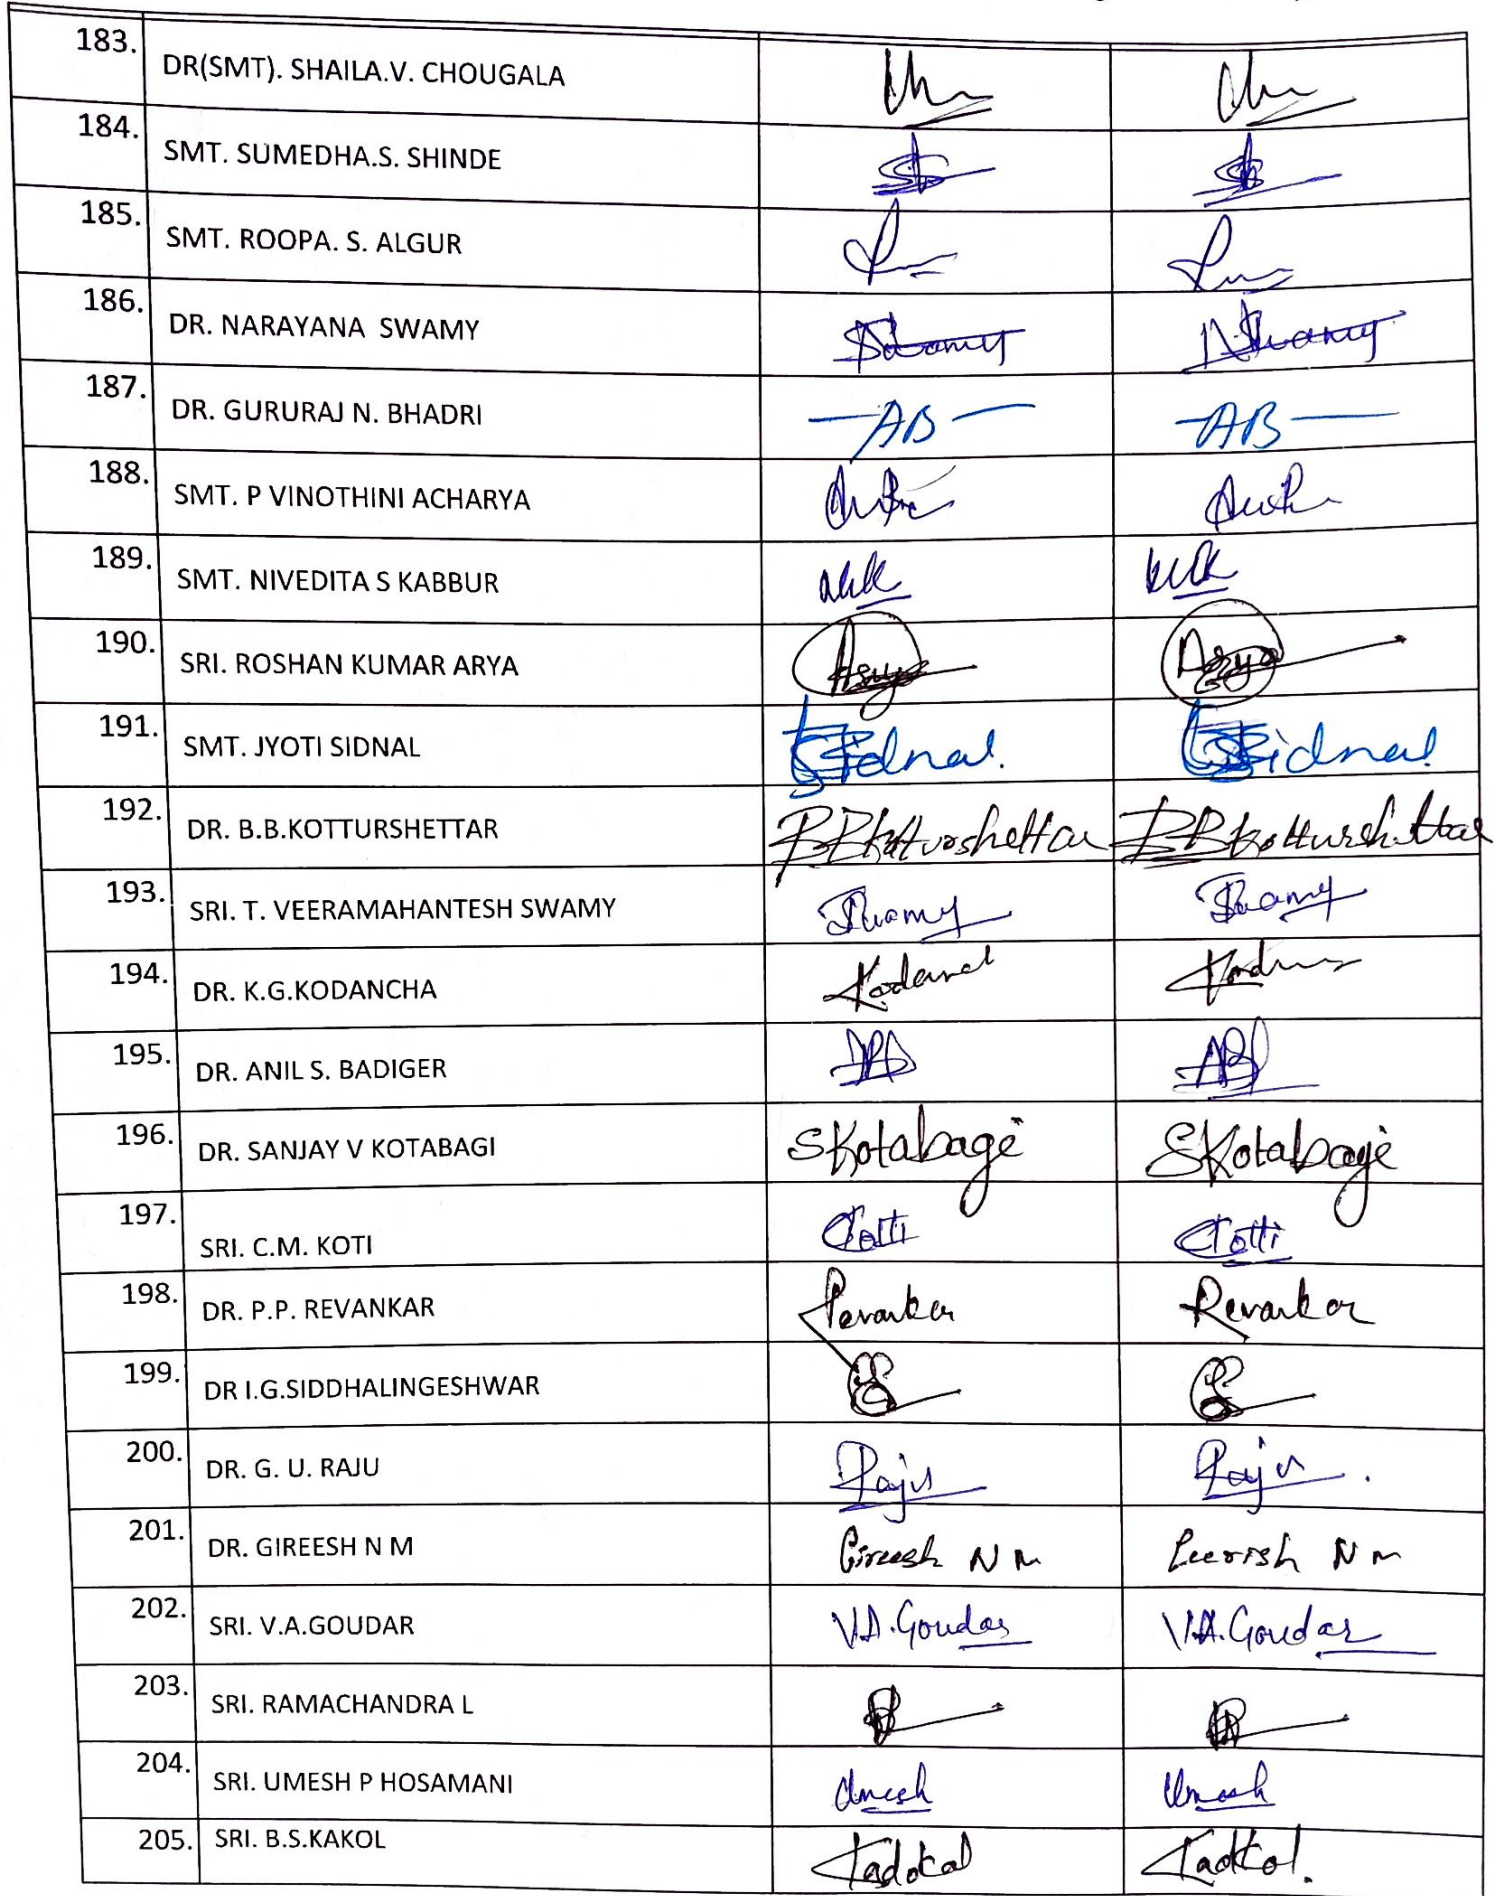 183. DR(SMT). SHAILA.V. CHOUGALA
184. SMT. SUMEDHA.S. SHINDE
185. SMT. ROOPA. S. ALGUR
186. DR. NARAYANA SWAMY Swamy NSwamy
187. DR. GURURAJ N. BHADRI —AB— —AB—
188. SMT. P VINOTHINI ACHARYA
189. SMT. NIVEDITA S KABBUR
190. SRI. ROSHAN KUMAR ARYA Arya Arya
191. SMT. JYOTI SIDNAL Sidnal. Sidnal
192. DR. B.B.KOTTURSHETTAR BBKotturshettar BBKotturshettar
193. SRI. T. VEERAMAHANTESH SWAMY Swamy Swamy
194. DR. K.G.KODANCHA
195. DR. ANIL S. BADIGER
196. DR. SANJAY V KOTABAGI SKotabagi SKotabagi
197. SRI. C.M. KOTI
198. DR. P.P. REVANKAR Revankar Revankar
199. DR I.G.SIDDHALINGESHWAR
200. DR. G. U. RAJU Raju Raju
201. DR. GIREESH N M Gireesh N M Geerish N M
202. SRI. V.A.GOUDAR V.A.Goudar V.A.Goudar
203. SRI. RAMACHANDRA L
204. SRI. UMESH P HOSAMANI Umesh Umesh
205. SRI. B.S.KAKOL